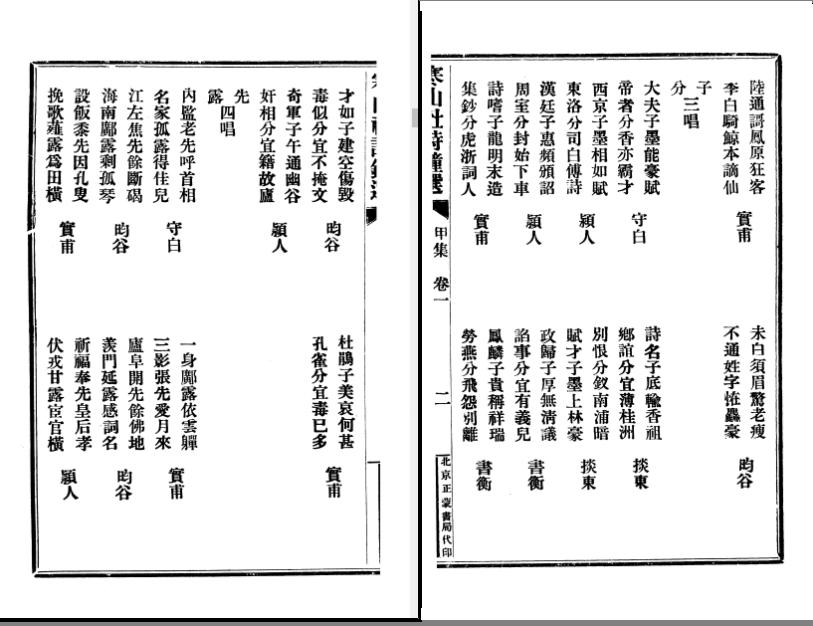 陸通謌鳳原狂客
李白騎鯨本謫仙
實甫
未白須眉驚老瘦
不通姓字恠麤豪
昀谷
子
分
三唱
大夫子墨能豪賦
帝者分香亦霸才
守白
詩名子底輸香祖
鄉誼分宜薄桂洲
掞東
西京子墨相如賦
東洛分司白傅詩
潁人
別恨分釵南浦暗
賦才子墨上林豪
掞東
漢廷子惠頻頒詔
周室分封始下車
潁人
政歸子厚無清議
諂事分宜有義兒
書衡
詩嗜子龍明末造
集鈔分虎浙詞人
實甫
鳳麟子貴稱祥瑞
勞燕分飛怨別離
書衡
寒山社詩鐘選
甲集 卷一
二
北京正蒙書局代印
才如子建空傷毀
毒似分宜不掩文
昀谷
杜鵑子美哀何甚
孔雀分宜毒已多
實甫
奇軍子午通幽谷
奸相分宜籍故廬
潁人
先
露
四唱
內監老先呼首相
名家孤露得佳兒
守白
一身鄺露依雲嚲
三影張先愛月來
實甫
江左焦先餘斷碣
海南鄺露剩孤琴
昀谷
廬阜開先餘佛地
羨門延露感詞名
昀谷
設飯黍先因孔叟
挽歌薤露爲田橫
實甫
祈福奉先皇后孝
伏戎甘露宦官橫
潁人